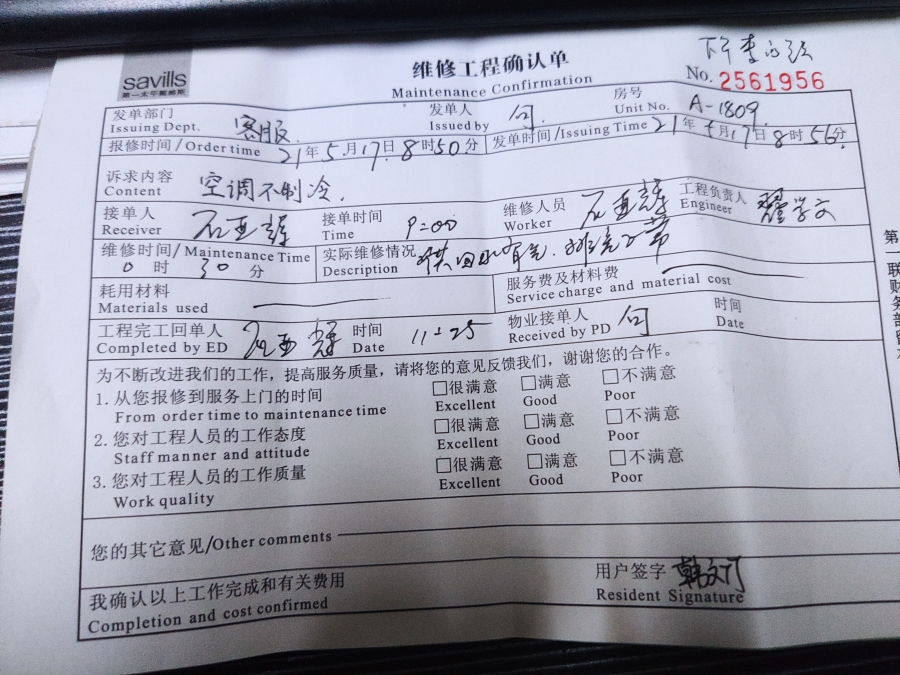 savills
第一太平戴维斯
维修工程确认单
Maintenance Confirmation
No. 2561956
发单部门 客服 发单人 房号 A-1809
Issuing Dept. Issued by Unit No.
报修时间/Order time 21年5月17日8时50分 发单时间/Issuing Time 21年5月17日8时56分
诉求内容 空调不制冷
Content
接单人 石亚辉 接单时间 9=00 维修人员 石亚辉 工程负责人 翟学文
Receiver Time Worker Engineer
维修时间/Maintenance Time 实际维修情况
0时30分 Description
耗用材料 服务费及材料费
Materials used Service charge and material cost
工程完工回单人 石亚辉 时间 11=25 物业接单人 时间
Completed by ED Date Received by PD Date
为不断改进我们的工作，提高服务质量，请将您的意见反馈我们，谢谢您的合作。
1. 从您报修到服务上门的时间 □很满意 □满意 □不满意
From order time to maintenance time Excellent Good Poor
2. 您对工程人员的工作态度 □很满意 □满意 □不满意
Staff manner and attitude Excellent Good Poor
3. 您对工程人员的工作质量 □很满意 □满意 □不满意
Work quality Excellent Good Poor
您的其它意见/Other comments
我确认以上工作完成和有关费用 用户签字
Completion and cost confirmed Resident Signature